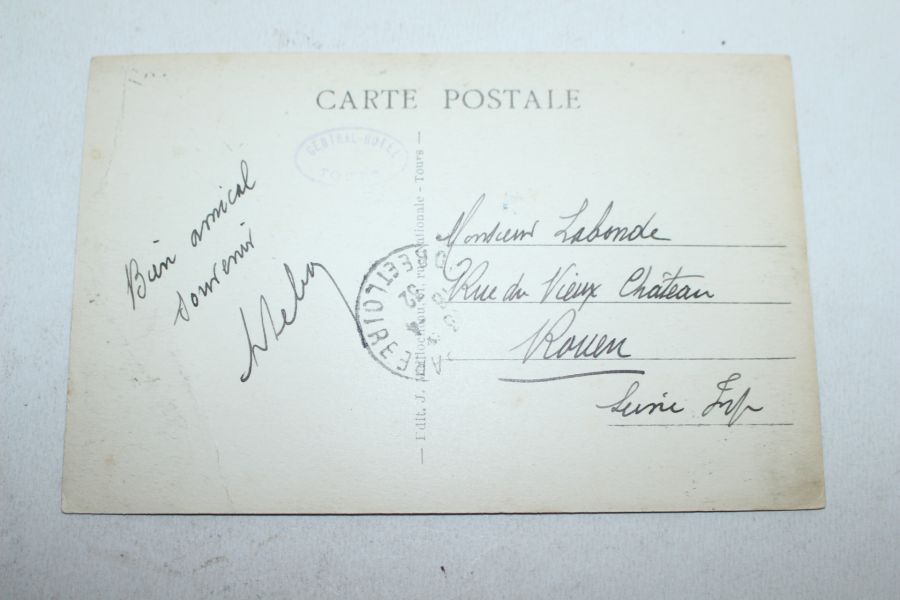 CARTE POSTALE
CENTRAL-HOTEL
TOURS
Bien amical
souvenir
Edit. J. rue Nationale - Tours
ET LOIRE
32
Monsieur Labonde
Rue du Vieux Château
Rouen
Seine Infr